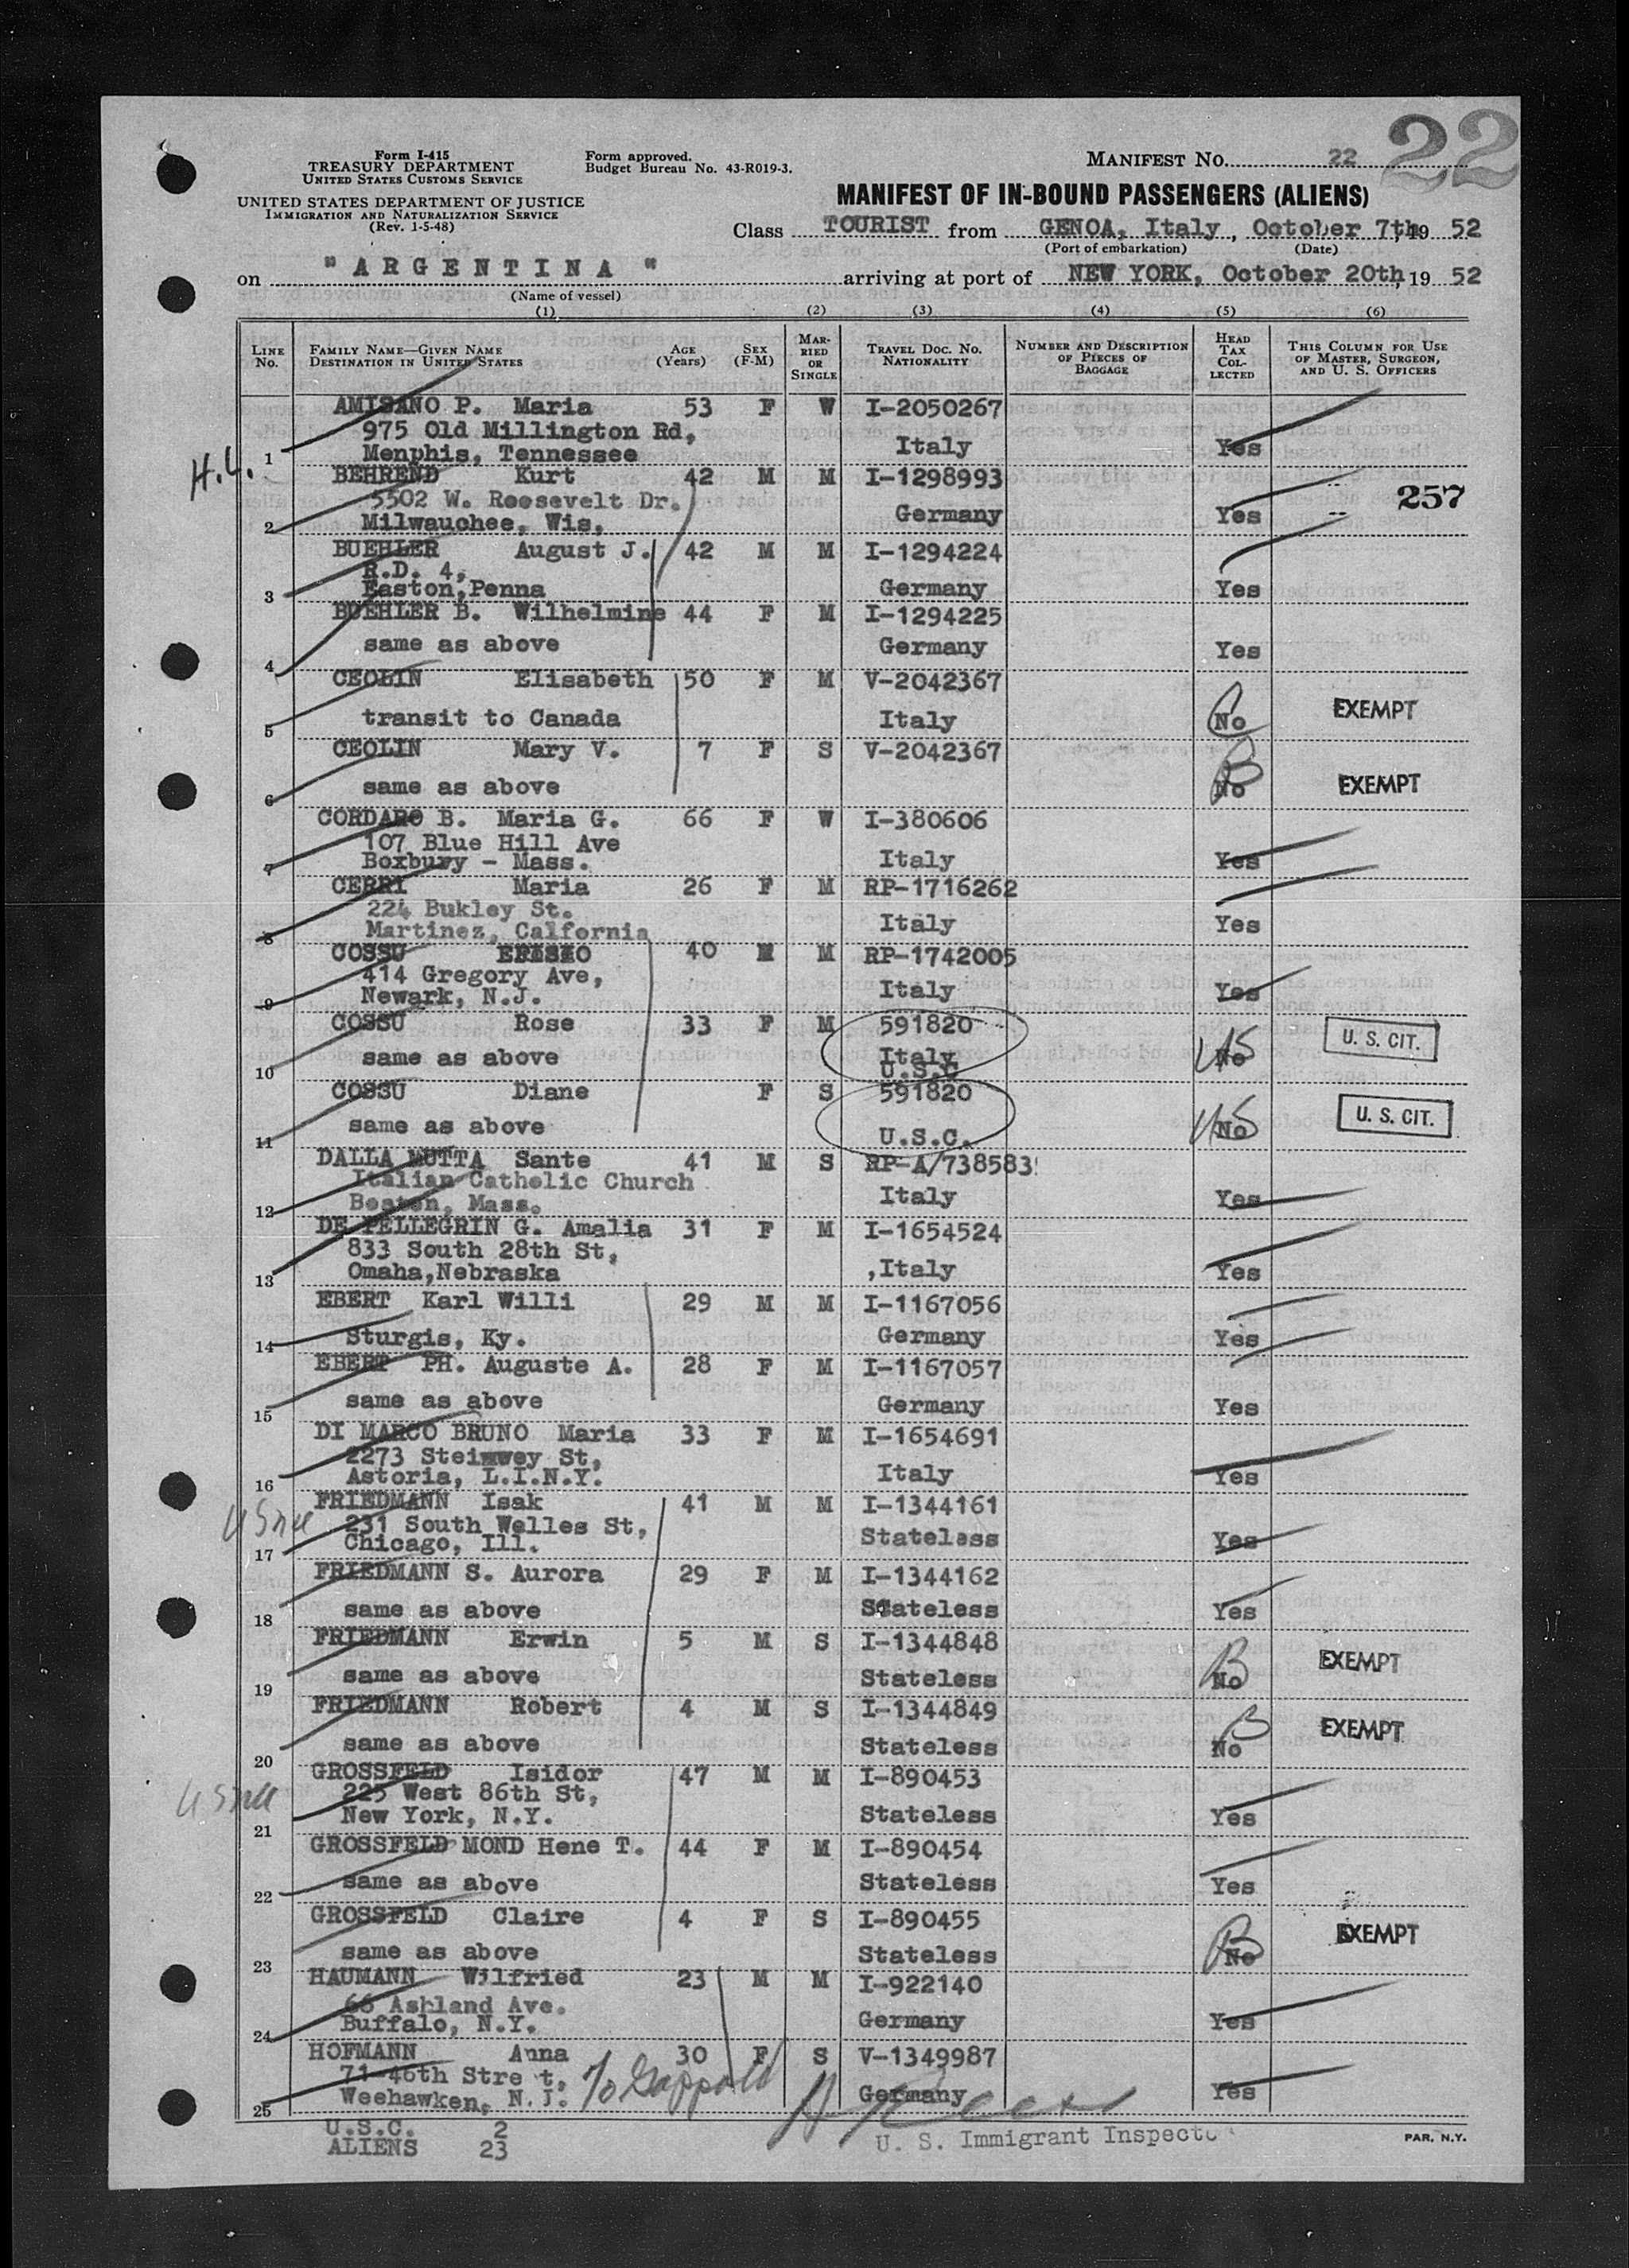 22
Form I-415
TREASURY DEPARTMENT
UNITED STATES CUSTOMS SERVICE
UNITED STATES DEPARTMENT OF JUSTICE
IMMIGRATION AND NATURALIZATION SERVICE
(Rev. 1-5-48)
Form approved.
Budget Bureau No. 43-R019-3.
MANIFEST No. 22
MANIFEST OF IN-BOUND PASSENGERS (ALIENS)
Class TOURIST from GENOA, Italy, October 7th, 19 52
(Port of embarkation) (Date)
on "ARGENTINA" arriving at port of NEW YORK, October 20th, 19 52
(Name of vessel)
(1) (2) (3) (4) (5) (6)
LINE No. FAMILY NAME—GIVEN NAME DESTINATION IN UNITED STATES AGE (Years) SEX (F-M) MARRIED OR SINGLE TRAVEL DOC. NO. NATIONALITY NUMBER AND DESCRIPTION OF PIECES OF BAGGAGE HEAD TAX COLLECTED THIS COLUMN FOR USE OF MASTER, SURGEON, AND U. S. OFFICERS
AMISANO P. Maria 53 F W I-2050267
975 Old Millington Rd,
1 Menphis, Tennessee Italy Yes
H.L.
BEHREND Kurt 42 M M I-1298993
5502 W. Roosevelt Dr. 257
2 Milwauchee, Wis, Germany Yes
BUEHLER August J. 42 M M I-1294224
R.D. 4,
3 Easton,Penna Germany Yes
BUEHLER B. Wilhelmine 44 F M I-1294225
4 same as above Germany Yes
CEOLIN Elisabeth 50 F M V-2042367
5 transit to Canada Italy No EXEMPT
CEOLIN Mary V. 7 F S V-2042367
6 same as above B No EXEMPT
CORDARO B. Maria G. 66 F W I-380606
107 Blue Hill Ave
7 Boxbury - Mass. Italy Yes
CERRI Maria 26 F M RP-1716262
224 Bukley St.
8 Martinez, Calfornia Italy Yes
COSSU 40 M M RP-1742005
414 Gregory Ave,
9 Newark, N.J. Italy Yes
COSSU Rose 33 F M 591820
10 same as above Italy U.S.C No US U. S. CIT.
COSSU Diane F S 591820
11 same as above U.S.C. No US U. S. CIT.
DALLA MUTTA Sante 41 M S RP-A/738583
Italian Catholic Church
12 Boston, Mass. Italy Yes
DE PELLEGRIN G. Amalia 31 F M I-1654524
833 South 28th St,
13 Omaha,Nebraska ,Italy Yes
EBERT Karl Willi 29 M M I-1167056
14 Sturgis, Ky. Germany Yes
EBERT PH. Auguste A. 28 F M I-1167057
15 same as above Germany Yes
DI MARCO BRUNO Maria 33 F M I-1654691
2273 Steinwey St,
16 Astoria, L.I.N.Y. Italy Yes
FRIEDMANN Isak 41 M M I-1344161
231 South Welles St,
17 Chicago, Ill. Stateless Yes
FRIEDMANN S. Aurora 29 F M I-1344162
18 same as above Stateless Yes
FRIEDMANN Erwin 5 M S I-1344848
19 same as above Stateless B No EXEMPT
FRIEDMANN Robert 4 M S I-1344849
20 same as above Stateless B No EXEMPT
GROSSFELD Isidor 47 M M I-890453
225 West 86th St,
21 New York, N.Y. Stateless Yes
GROSSFELD MOND Hene T. 44 F M I-890454
22 same as above Stateless Yes
GROSSFELD Claire 4 F S I-890455
23 same as above Stateless B No EXEMPT
HAUMANN Wilfried 23 M M I-922140
66 Ashland Ave.
24 Buffalo, N.Y. Germany Yes
HOFMANN Anna 30 F S V-1349987
71-46th Stre t,
25 Weehawken, N.J. Germany Yes
U.S.C. 2
ALIENS 23
U. S. Immigrant Inspecto
PAR. N.Y.